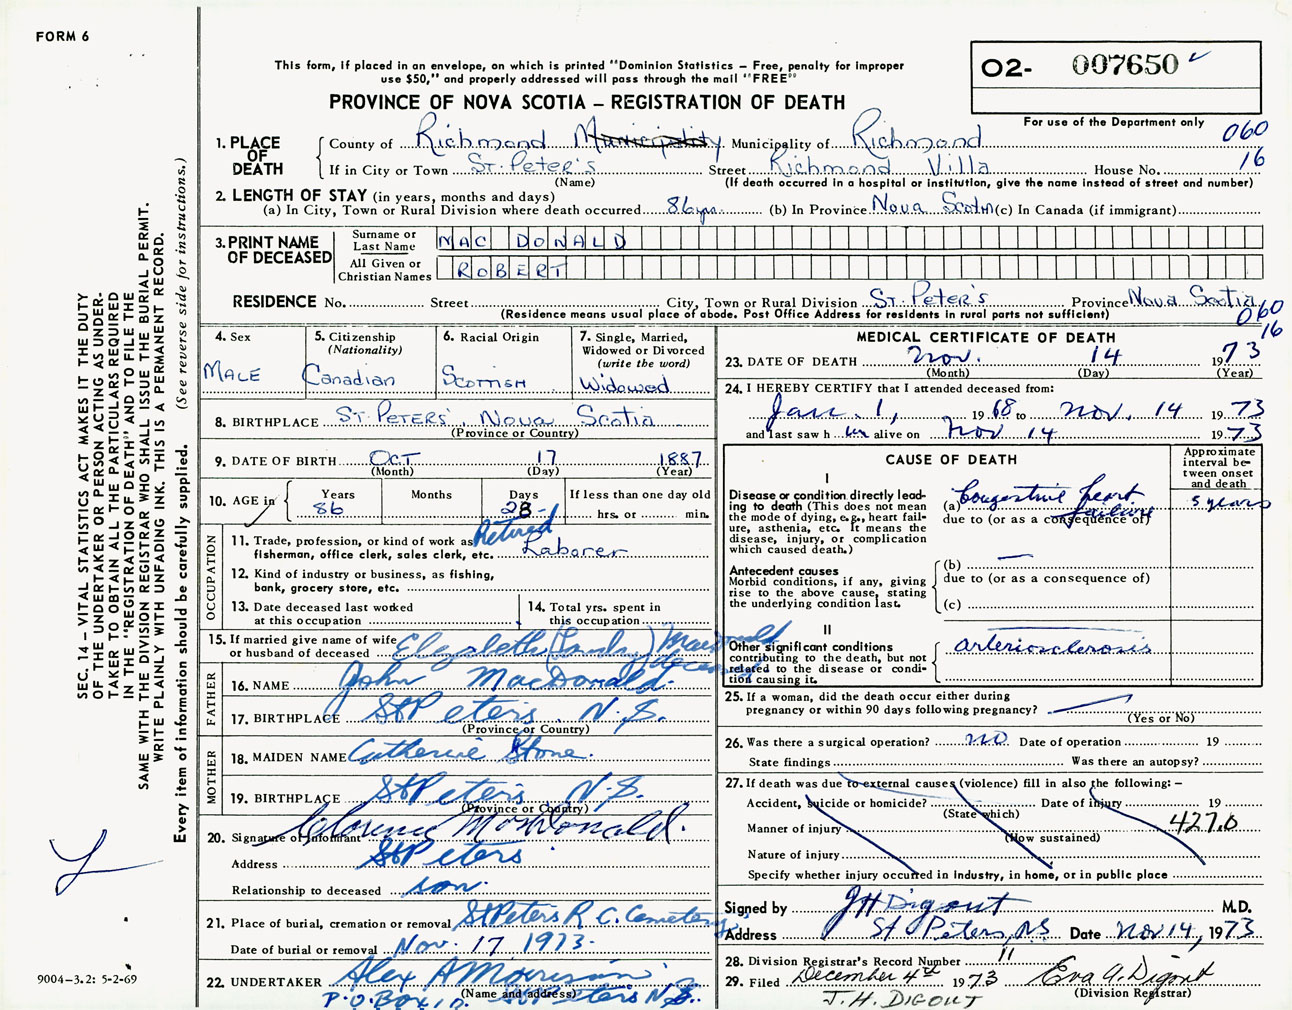 FORM 6
This form, if placed in an envelope, on which is printed "Dominion Statistics – Free, penalty for improper
use $50," and properly addressed will pass through the mail "FREE"
PROVINCE OF NOVA SCOTIA – REGISTRATION OF DEATH
O2- 007650
For use of the Department only
060
16
1. PLACE OF DEATH
County of Richmond Municipality Municipality of Richmond
If in City or Town St. Peter's Street Richmond Villa House No.
(Name) (If death occurred in a hospital or institution, give the name instead of street and number)
2. LENGTH OF STAY (in years, months and days)
(a) In City, Town or Rural Division where death occurred 86 yrs. (b) In Province Nova Scotia (c) In Canada (if immigrant)
3. PRINT NAME OF DECEASED
Surname or Last Name MAC DONALD
All Given or Christian Names ROBERT
RESIDENCE No. Street City, Town or Rural Division St. Peter's Province Nova Scotia
(Residence means usual place of abode. Post Office Address for residents in rural parts not sufficient)
060
16
4. Sex
MALE
5. Citizenship (Nationality)
Canadian
6. Racial Origin
Scottish
7. Single, Married, Widowed or Divorced (write the word)
Widowed
8. BIRTHPLACE St. Peters', Nova Scotia
(Province or Country)
9. DATE OF BIRTH Oct 17 1887
(Month) (Day) (Year)
10. AGE in
Years Months Days If less than one day old
86 28 hrs. or min.
OCCUPATION
11. Trade, profession, or kind of work as fisherman, office clerk, sales clerk, etc. Retired Laborer
12. Kind of industry or business, as fishing, bank, grocery store, etc.
13. Date deceased last worked at this occupation
14. Total yrs. spent in this occupation
15. If married give name of wife or husband of deceased Elizabeth MacDonald
FATHER
16. NAME John MacDonald.
17. BIRTHPLACE St Peters, N.S.
(Province or Country)
MOTHER
18. MAIDEN NAME Catherine Stone.
19. BIRTHPLACE St Peters N.S.
(Province or Country)
20. Signature of Informant Clarence MacDonald.
Address St Peters
Relationship to deceased son.
21. Place of burial, cremation or removal St Peters R.C. Cemetery
Date of burial or removal Nov. 17 1973.
22. UNDERTAKER Alex A Morrison
(Name and address)
P.O. Box 10. St Peters N.S.
MEDICAL CERTIFICATE OF DEATH
23. DATE OF DEATH Nov. 14 1973
(Month) (Day) (Year)
24. I HEREBY CERTIFY that I attended deceased from:
Jan. 1, 1968 to Nov. 14 1973
and last saw h im alive on Nov 14 1973
CAUSE OF DEATH
Approximate interval between onset and death
I
Disease or condition directly leading to death (This does not mean the mode of dying, e.g., heart failure, asthenia, etc. It means the disease, injury, or complication which caused death.)
(a) Congestive heart failure 5 years
due to (or as a consequence of)
Antecedent causes
Morbid conditions, if any, giving rise to the above cause, stating the underlying condition last.
(b)
due to (or as a consequence of)
(c)
II
Other significant conditions contributing to the death, but not related to the disease or condition causing it.
arteriosclerosis
25. If a woman, did the death occur either during pregnancy or within 90 days following pregnancy?
(Yes or No)
26. Was there a surgical operation? no Date of operation 19
State findings Was there an autopsy?
27. If death was due to external causes (violence) fill in also the following: –
Accident, suicide or homicide? Date of injury 19
(State which)
427.0
Manner of injury
(How sustained)
Nature of injury
Specify whether injury occurred in industry, in home, or in public place
Signed by J H Digout M.D.
Address St Peters, NS Date Nov 14, 1973
28. Division Registrar's Record Number 11
29. Filed December 4th 1973 Eva A. Digout
(Division Registrar)
J. H. DIGOUT
SEC. 14 – VITAL STATISTICS ACT MAKES IT THE DUTY
OF THE UNDERTAKER OR PERSON ACTING AS UNDER-
TAKER TO OBTAIN ALL THE PARTICULARS REQUIRED
IN THE "REGISTRATION OF DEATH" AND TO FILE THE
SAME WITH THE DIVISION REGISTRAR WHO SHALL ISSUE THE BURIAL PERMIT.
WRITE PLAINLY WITH UNFADING INK. THIS IS A PERMANENT RECORD.
Every item of information should be carefully supplied. (See reverse side for instructions.)
9004–3.2: 5-2-69